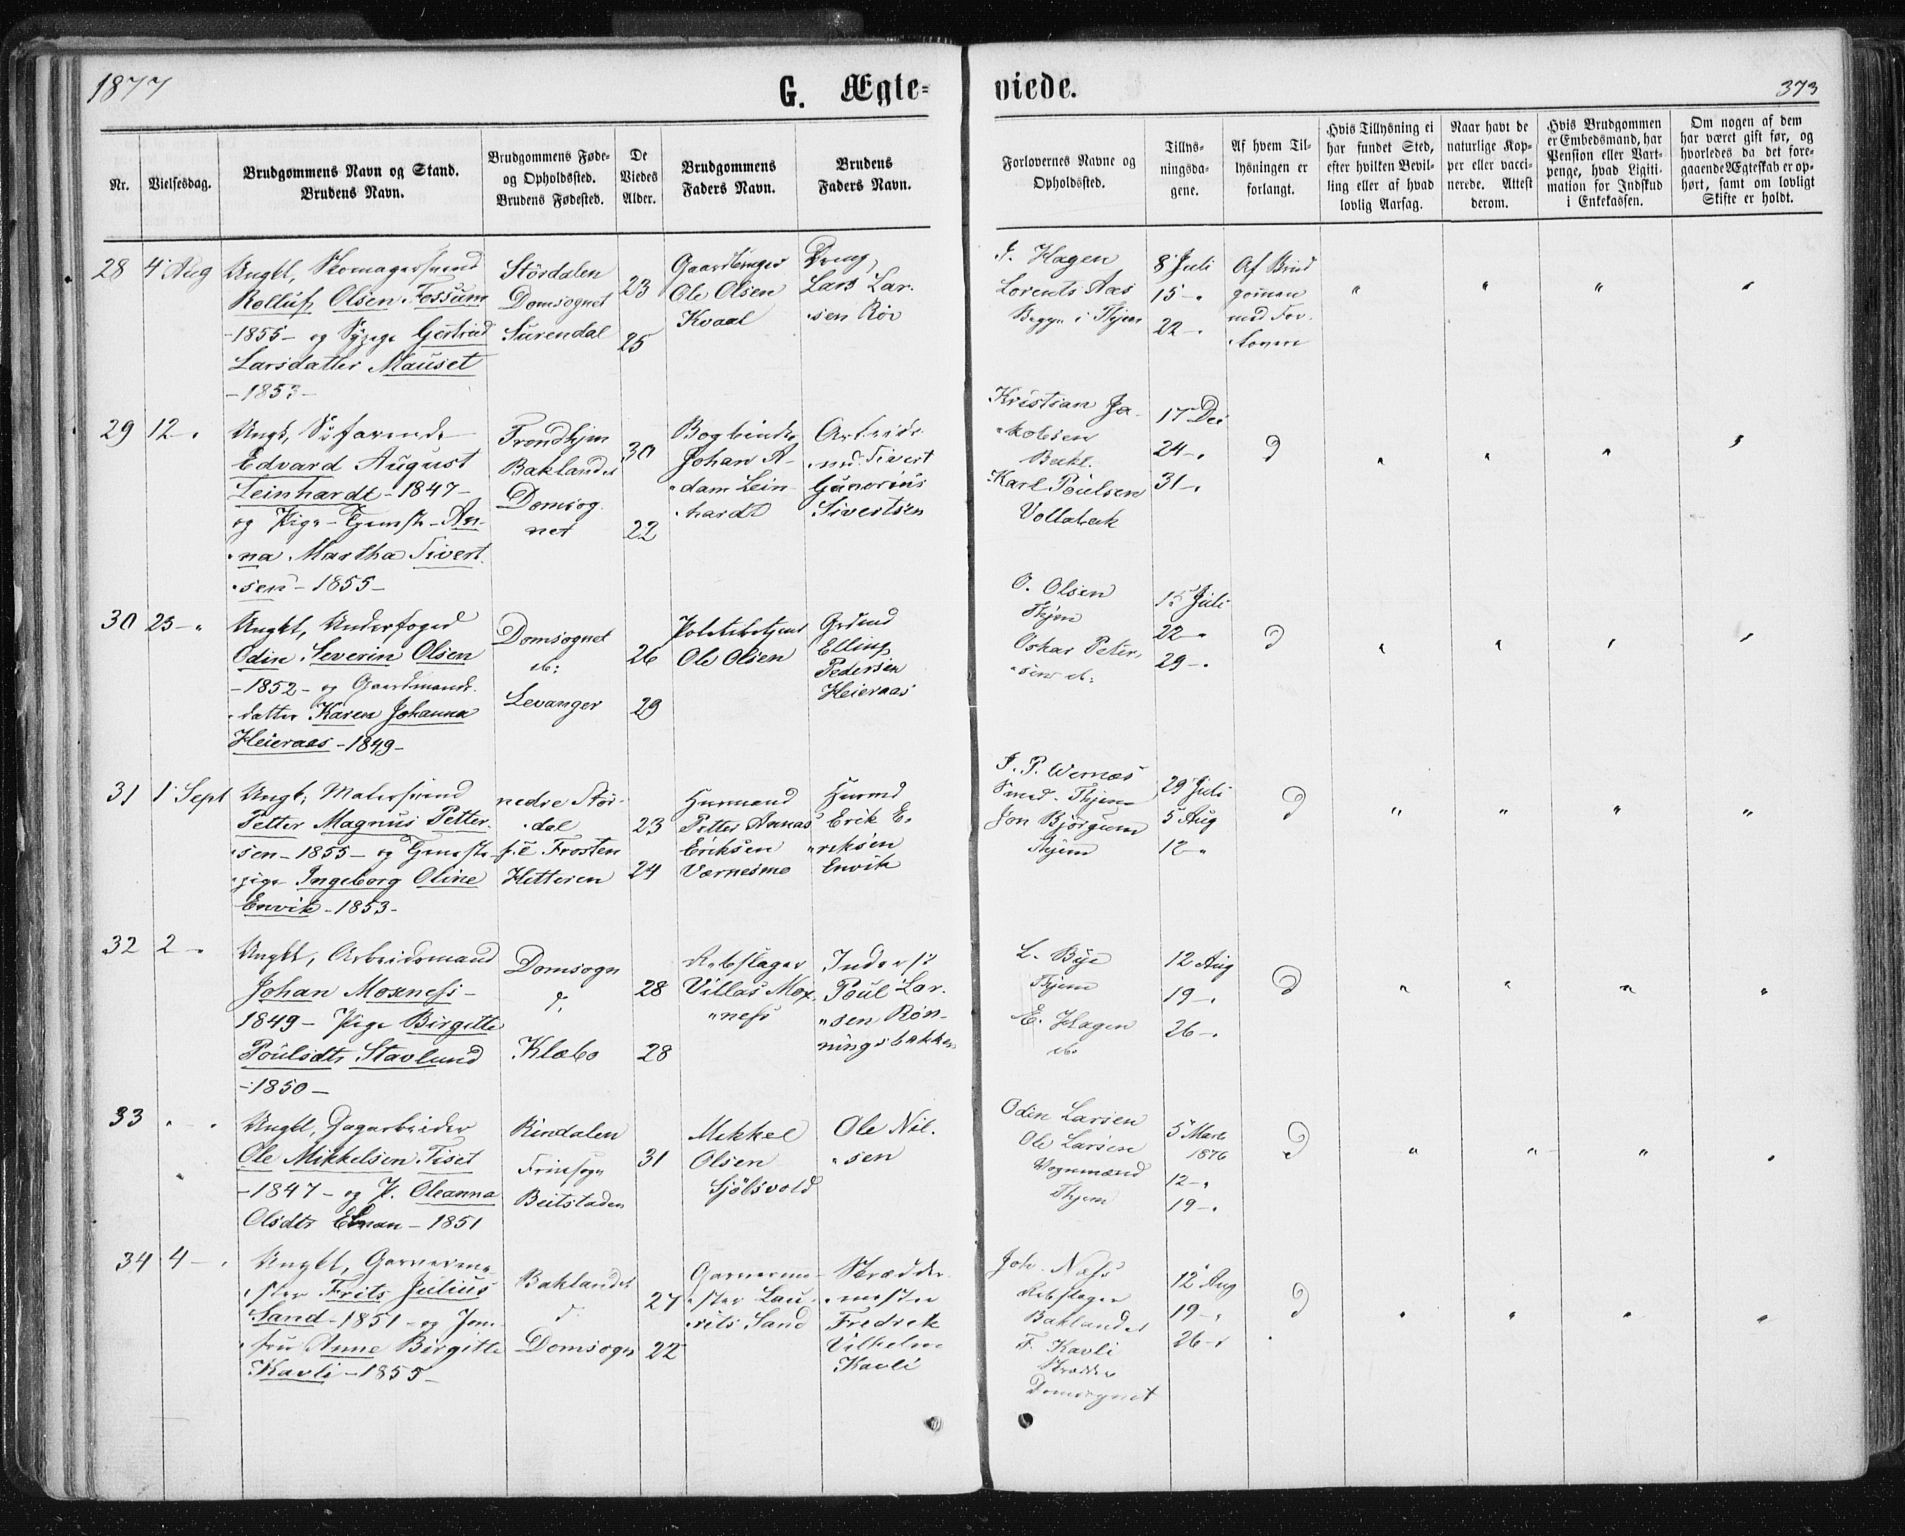 1877
G. Ægte=
viede.
373
Nr.
Vielsesdag.
Brudgommens Navn og Stand.
Brudens Navn.
Brudgommens Føde-
og Opholdssted.
Brudens Fødested.
De
Viedes
Alder.
Brudgommens
Faders Navn.
Brudens
Faders Navn.
Forlovernes Navne og
Opholdssted.
Tillys-
ningsda-
gene.
Af hvem Til-
lysningen er
forlangt.
Hvis Tillysning ei
har fundet Sted,
efter hvilken Bevil-
ling eller af hvad
lovlig Aarsag.
Naar havt de
naturlige Kop-
per eller vacci-
nerede. Attest
derom.
Hvis Brudgommen
er Embedsmand, har
Pension eller Vart-
penge, hvad Ligiti-
mation for Indskud
i Enkekassen.
Om nogen af dem
har været gift før, og
hvorledes da det fore-
gaaende Ægteskab er op-
hørt, samt om lovligt
Skifte er holdt.
28
4 Aug
Ungkl, Skomagersvend
Rolluf Olsen Fossum
-1855- og Pige Gertrud
Larsdatter Mauset
-1853-
Stördalen
Domsognet
Surendal
23
25
Gaardbruger
Ole Olsen
Kvaal
Dreng
Lars Lar-
sen Röv
J. Hagen
Lorents Aas
i Thjem
8 Juli
15 -
22 -
Af Brud
gommen
med For
lovere
29
12 -
Ungk, Söfarende
Edvard August
Leinhardt - 1847 -
og Pige - Tjeneste - An-
na Martha Sivert
sen - 1855 -
Trondhjem
Baklandet
Domsog
net
30
22
Bogbinder
Johan A-
dam Lein-
hardt
Arbeids
md. Sivert
Gunerius
Sivertsen
Kristian Ja-
kobsen
Bakl.
Karl Poulsen
Vollabak
17 Dec
24 -
31 -
d
30
25 -
Ungkl, Underfoged
Odin Severin Olsen
- 1852 - og Gaardmands
datter Karen Johanna
Heieraas - 1849 -
Domsognet
do:
Levanger
26
29
Politibetjent
Ole Olsen
Grdmd
Elling
Pedersen
Heieraas
O. Olsen
Thjem
Oskar Peter,
sen do:
15 Juli
22 -
29 -
d
31
1 Sept
Ungk; Malersvend
Petter Magnus Petter
sen - 1855 - og Tjeneste
pige Ingeborg Oline
Envik - 1853 -
nedre Stör-
dal
f. i Frosten
Hitteren
23
24
Husmand
Petter Annas
Eriksen
Værnesmo
Husmd
Erik E-
riksen
Envik
J. P. Wernæs
Smed - Thjem
Jon Björgum
Thjem
29 Juli
5 Aug
12 -
d
32
2 -
Ungkl, Arbeidsmand
Johan Moxness -
1849 - Pige Birgitte
Poulsdtr Stavlund
- 1850 -
Domsogn
d.
Klæbo
28
28
Rebslager
Villas Mox
ness
Inderst
Poul Lar.
sen Rön-
ningsbakken
L. Bye
Thjem
E. Hagen
do
12 Aug
19 -
26 -
d
33
Ungkl, Dagarbeider
Ole Mikkelsen Tiset
- 1847 - og P. Oleanna
Olsdtr Elnan - 1851
Rindalen
Fruesogn
Beitstaden
31
Mikkel
Olsen
Sjölsvold
Ole Nil.
sen
Odin Larsen
Ole Larsen
Vognmænd
Thjem
5 Marts
1876
12 -
19 -
d
34
4 -
Ungkl, Garverme-
ster Frits Julius
Sand - 1851 - og Jom-
fru Anne Birgitte
Kavli - 1855 -
Baklandet
d.
Domsogn
27
22
Garverme-
ster Lau-
rits Sand
Skrædder
mester
Fredrik
Vilhelm
Kavli
Joh. Næss
Rebslager
Baklandet
F. Kavli
Skrædder
Domsognet
12 Aug
19 -
26 -
d